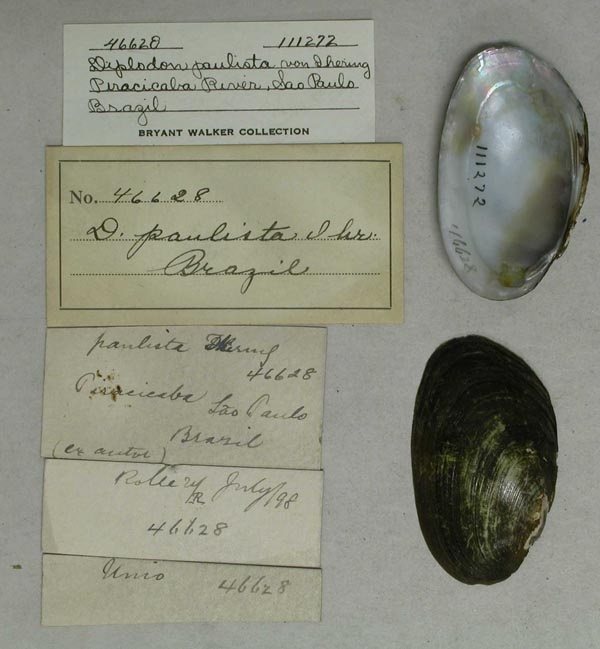 46628 111272
Diplodon paulista von Ihering
Piracicaba River, Sao Paulo
Brazil
BRYANT WALKER COLLECTION
No. 46628
D. paulista Ihr.
Brazil
paulista Ihering
46628
Piracicaba
São Paulo
Brazil
(ex autor)
July/98
46628
Unio 46628
111272
46628